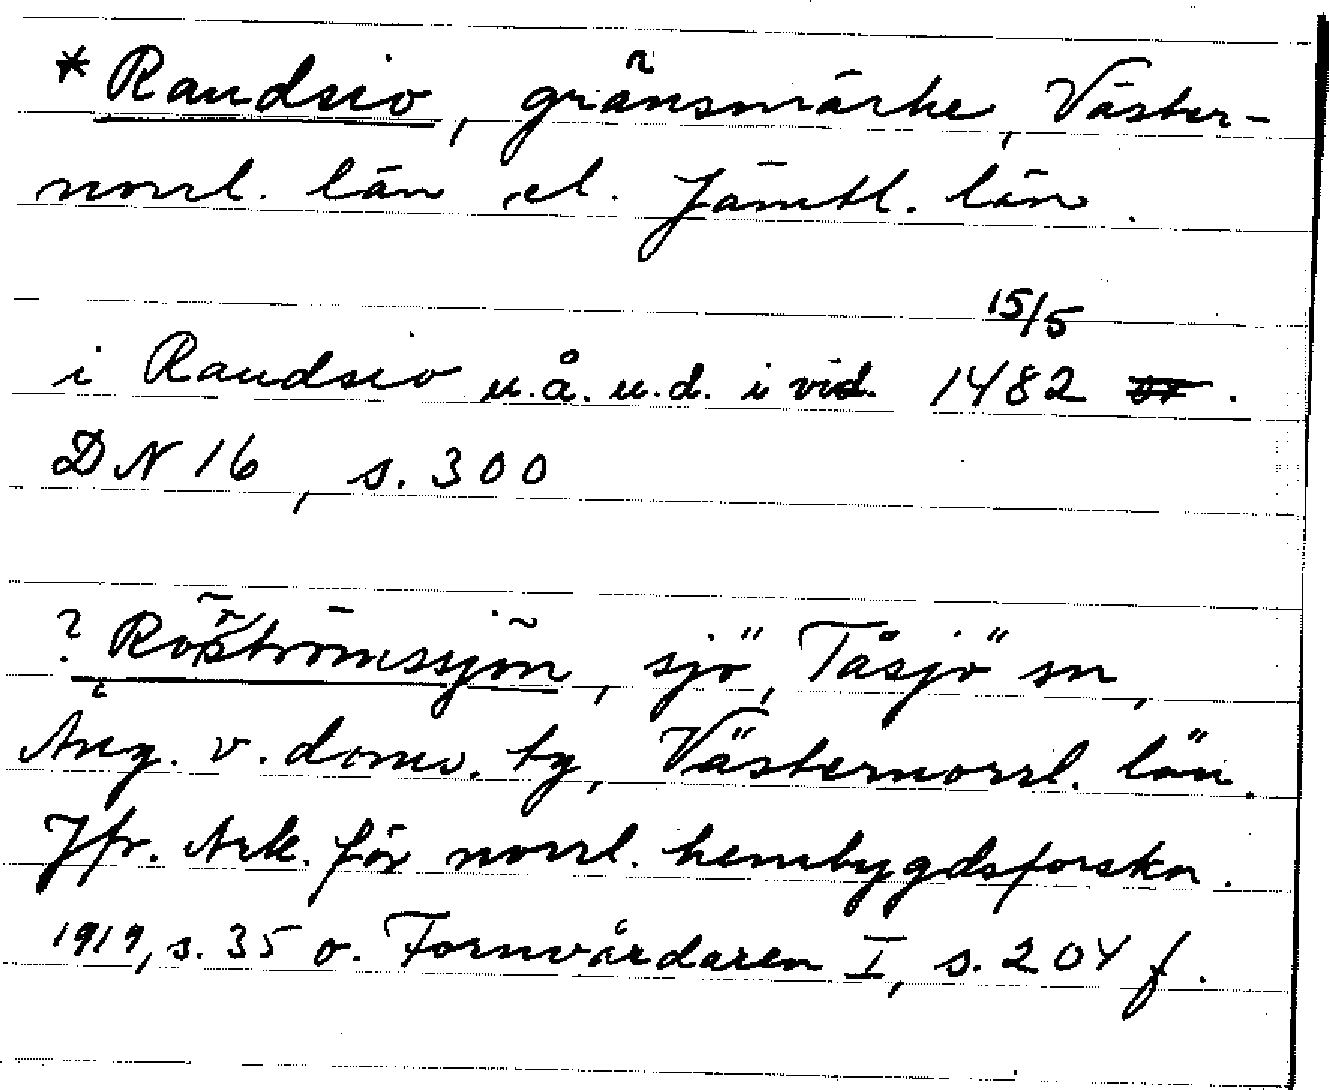 * Raudsio, gränsmärke, Väster-
norrl. län el. Jämtl. län.
15/5
i Raudsio u.å. u.d. i vid. 1482.
DN 16, s. 300
? Röströmssjön, sjö, Tåsjö sn,
Ång. v. doms. tg, Västernorrl. län.
Jfr. Ark. för norrl. hembygdsforskn.
1919, s. 35 o. Fornvårdaren I, s. 204 f.